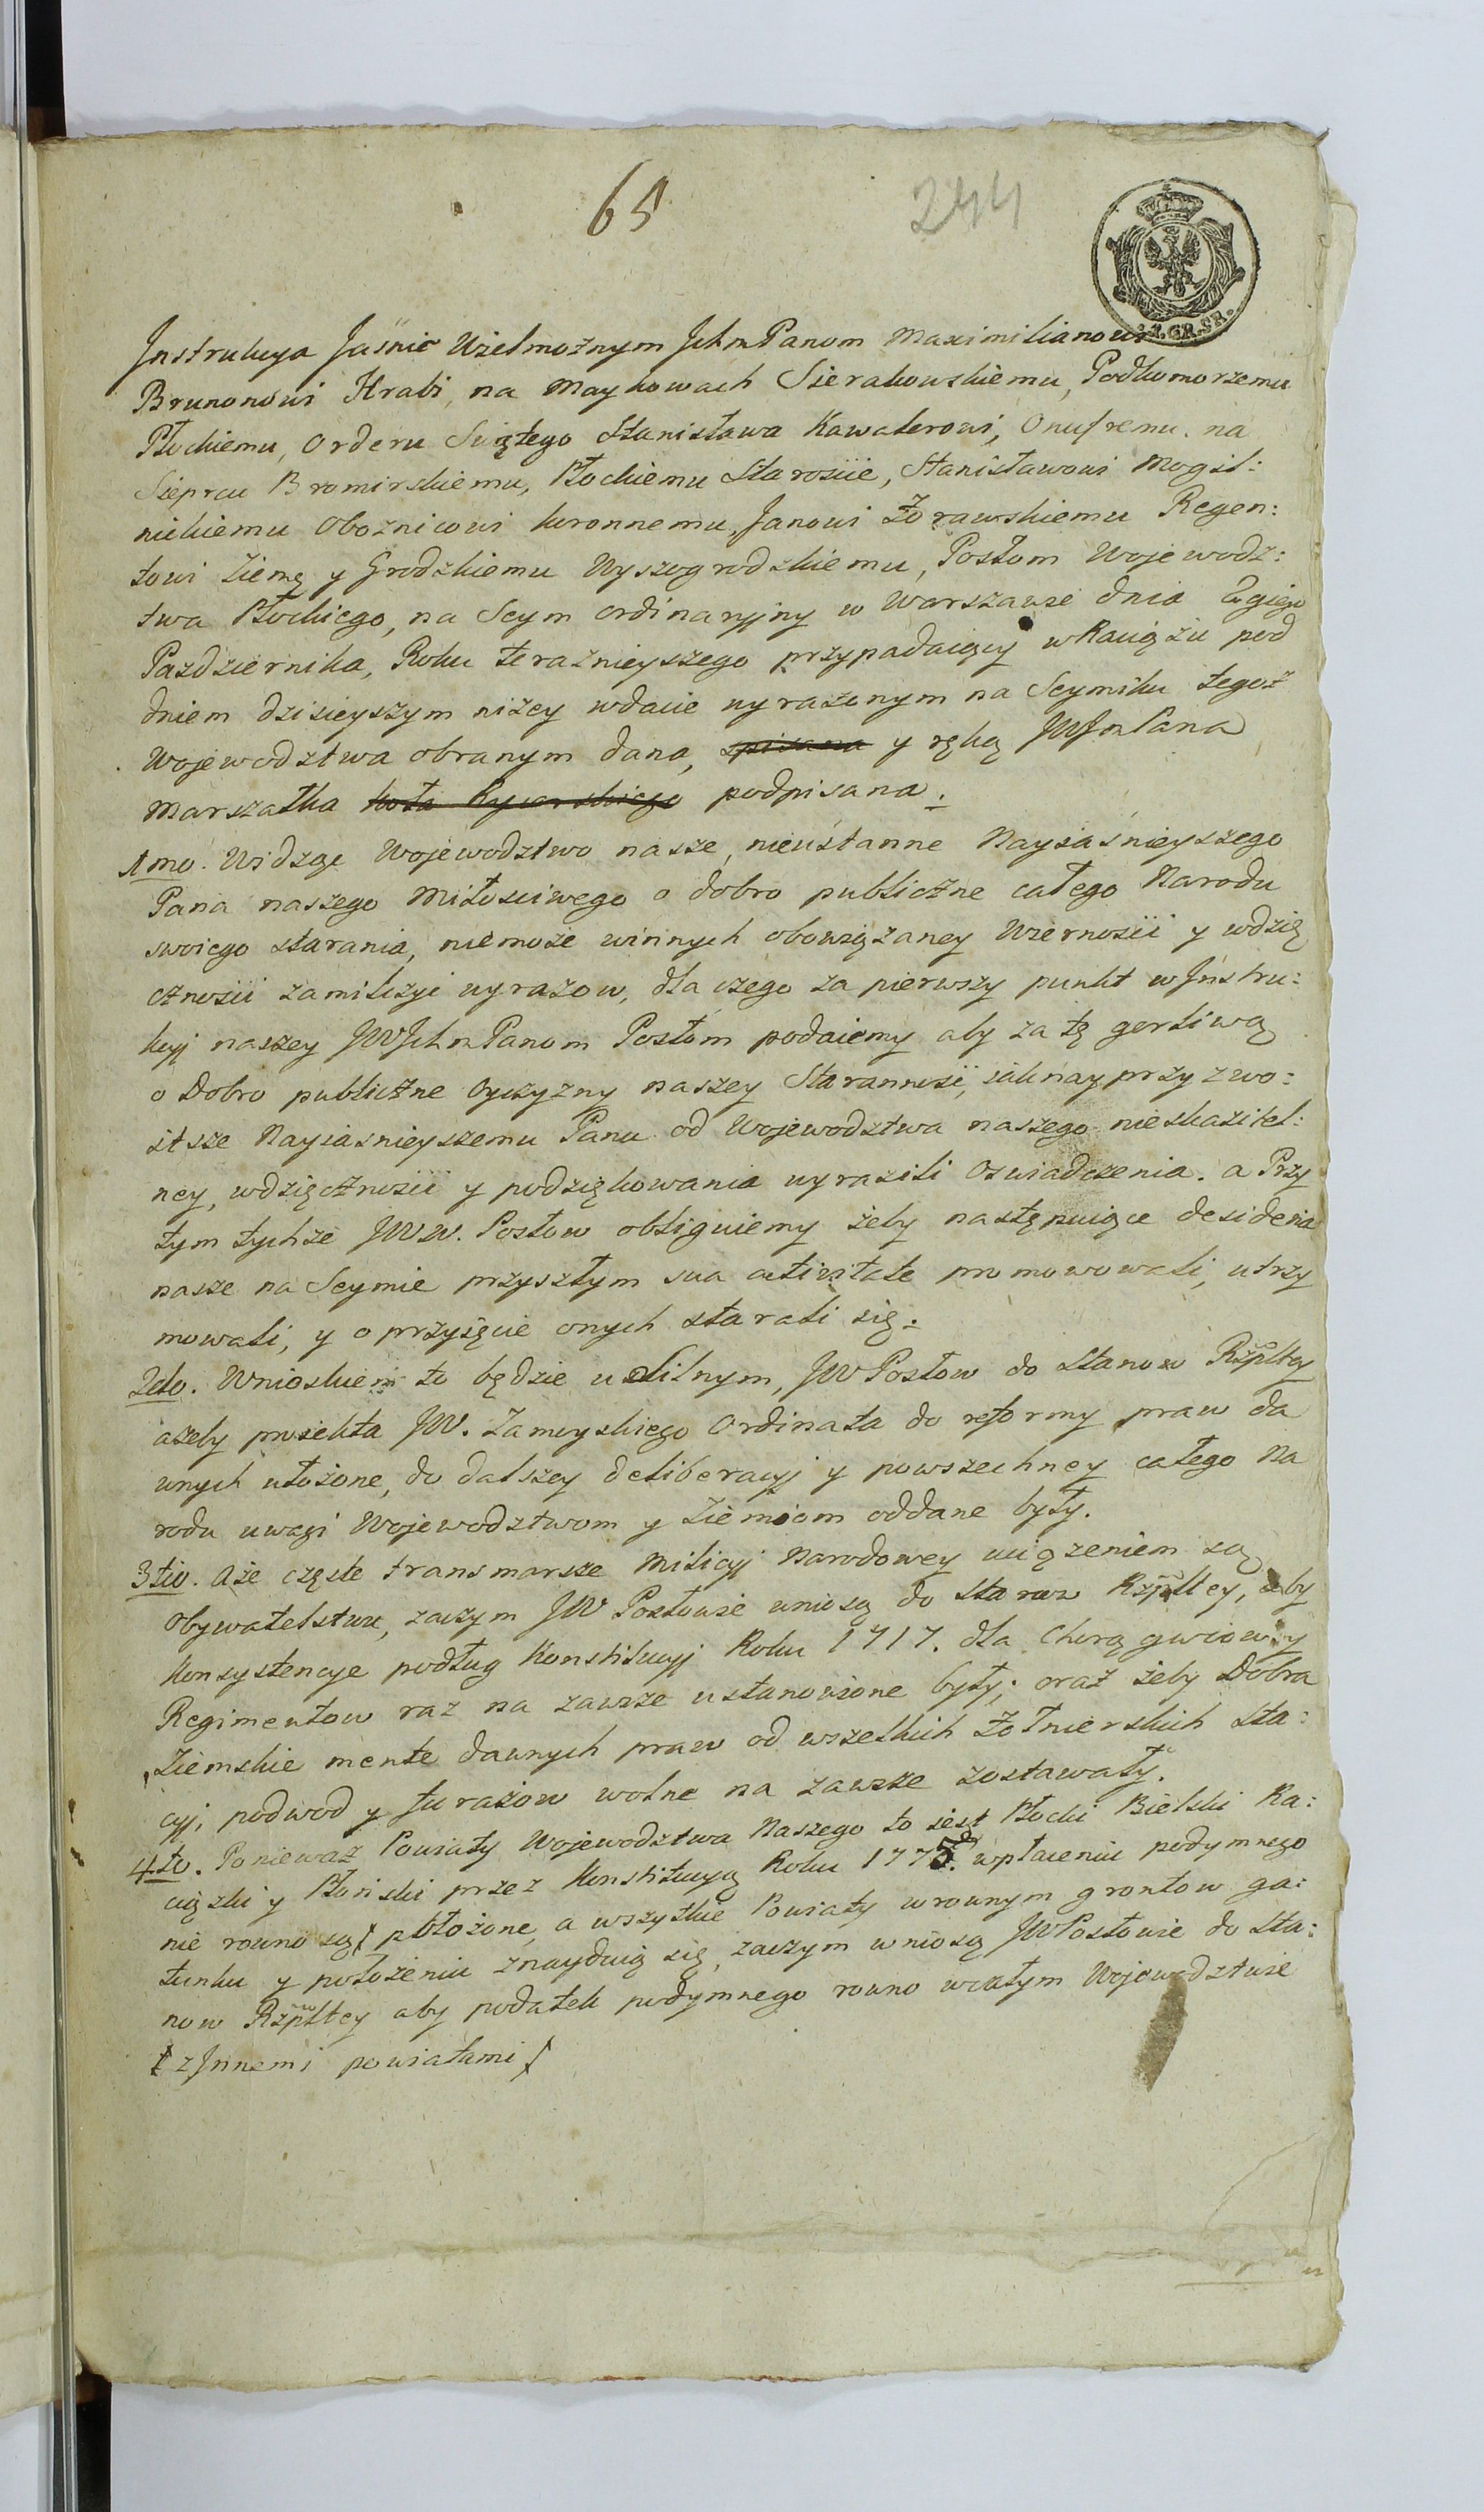 65
244
1.GR.SR.
Instrukcya Jaśnie Wielmożnym Ichm Panom Maximilianowi
Brunonowi Hrabi, na Maykowach Sierakowskiemu, Podkomorzemu
Płockiemu, Orderu Swiętego Stanisława Kawalerowi, Onufremu na
Sieprcu Bromirskiemu, Płockiemu Starosiie, Stanisławowi Mogil:
nickiemu Oboznicowi koronnemu, Janowi Żorawskiemu Regen:
towi Ziemę y Grodzkiemu Wyszogrodzkiemu, Posłom Wojewodz:
twa Płockiego, na Seym ordinaryjny w Warszawie dnia 2giego
Pazdziernika, Roku teraznieyszego przypadaiący w Raciążu pod
dniem dzisieyszym niżey wdacie wyrażonym na Seymiku tegoż
Wojewodztwa obranym dana, spisana y ręką JWJm Pana
Marszałka koła Rycerskiego podpisana.
1mo. Widząc Wojewodztwo nasze, nieustanne Nayiaśnieyszego
Pana naszego Miłosciwego o dobro publiczne całego Narodu
swoiego starania, niemoże winnych obowiązaney Wierności y wdzię
czności zamilczyć wyrazow, dla czego za pierwszy punkt w Instru:
kcyj naszey JWIchm Panom Posłom podaiemy aby za tę gorliwą
o Dobro publiczne Oyczyzny naszey Staranność, iak nayprzyzwo:
itsze Nayiasnieyszemu Panu od Wojewodztwa naszego nieskazitel:
ney, wdzięczności y podziękowania wyrazili Oswiadczenia. a Przy
tym tychże JWW. Posłow obliguiemy żeby następuiące desideria
nasze na Seymie przyszłym sua activitate promowowali, utrzy
mowali, y o przyięcie onych starali się.
2do. Wnioskiem to będzie usilnym, JW Posłow do Stanow Rzpltey
ażeby proiekta JW. Zamoyskiego Ordinata do reformy praw da
wnych ułożone, do dalszey deliberacyj y powszechney całego Na
rodu uwagi Wojewodztwom y Ziemiom oddane były.
3tio. Aże częste transmarsze Milicyj Narodowey uciążeniem są
Obywatelstwu, zaczym JW Posłowie wniosą do Stanow Rzpltey, aby
Konsystencye podług Konstitucyj Roku 1717. dla Chorągwiow y
Regimentow raz na zawsze ustanowione były; oraz żeby Dobra
Ziemskie mente dawnych praw od wszelkich Żołnierskich sta:
cyj, podwod y furażow wolne na zawsze zostawały.
4to. Ponieważ Powiaty Wojewodztwa Naszego to iest Płocki Bielski Ra:
ciązki y Płoński przez Konstitucyą Roku 1775. wpłaceniu podymnego
nie rowno są położone, a wszytkie Powiaty w rownym grontow ga:
tunku y położeniu znayduią się, zaczym wniosą JWPosłowie do Sta:
now Rzpltey aby podatek podymnego rowno w całym Wojewodztwie
z Innemi powiatami